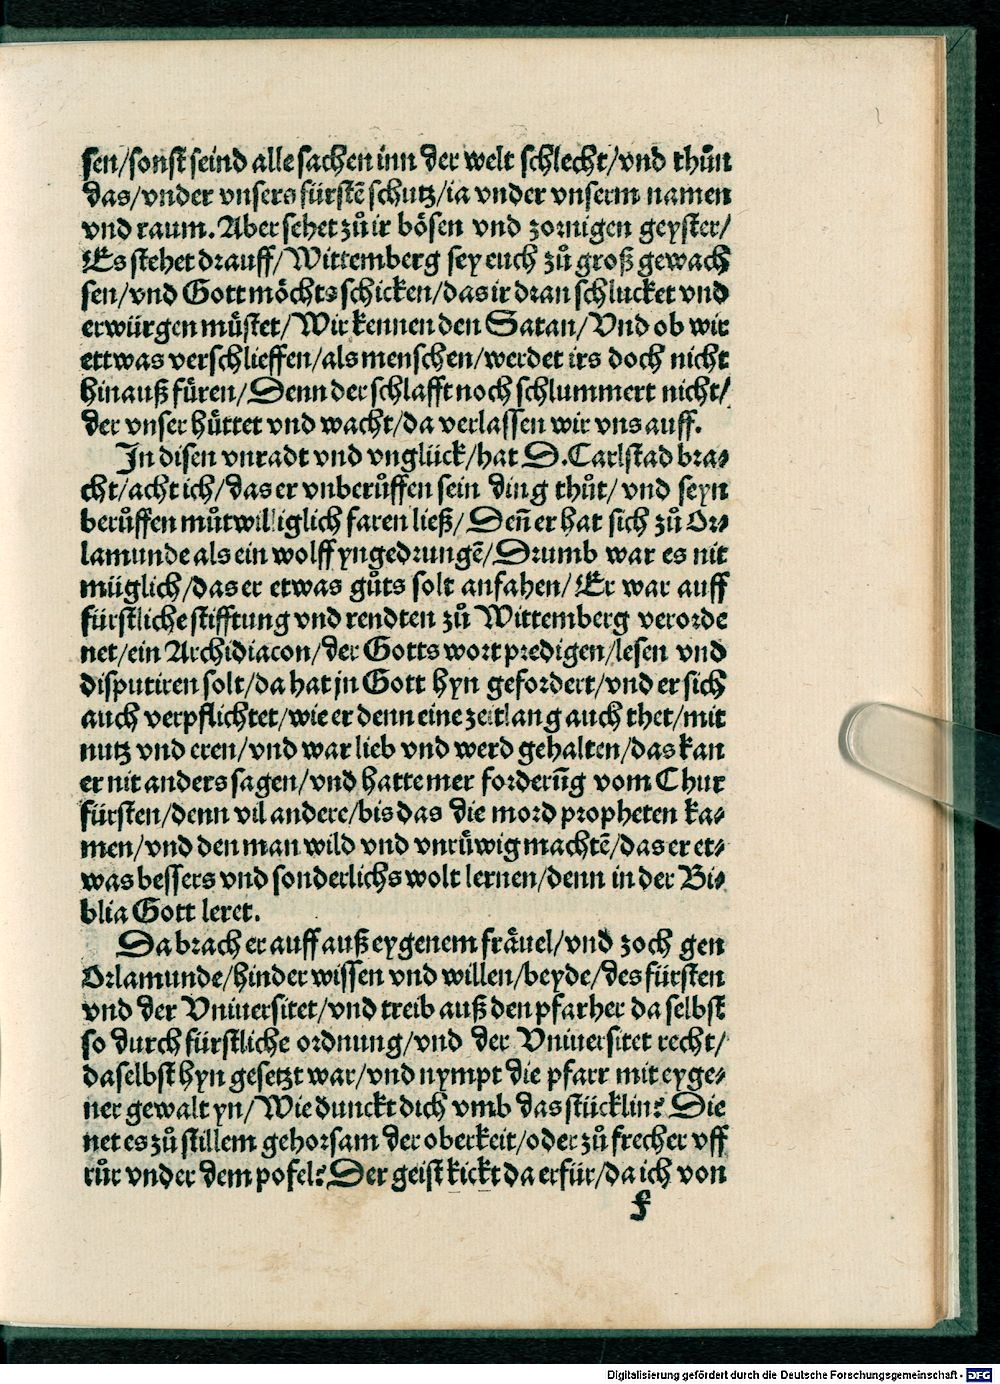 sen/sonst seind alle sachen inn der welt schlecht/vnd thůn
das/vnder vnsers fürstē schutz/ia vnder vnserm namen
vnd raum. Aber sehet zů ir bösen vnd zornigen geyster/
Es stehet drauff/Wittemberg sey euch zů groß gewach
sen/vnd Gott möchts schicken/das ir dran schlucket vnd
erwürgen müstet/Wir kennen den Satan/Vnd ob wir
ettwas verschlieffen/als menschen/werdet irs doch nicht
hinauß füren/Denn der schlafft noch schlummert nicht/
der vnser hüttet vnd wacht/da verlassen wir vns auff.
In disen vnradt vnd vnglück/hat D. Carlstad bra⸗
cht/acht ich/das er vnberůffen sein ding thůt/vnd seyn
berůffen můtwilliglich faren ließ/Deñ er hat sich zů Or⸗
lamunde als ein wolff yngedrungē/Drumb war es nit
müglich/das er etwas gůts solt anfahen/Er war auff
fürstliche stifftung vnd rendten zů Wittemberg verorde
net/ein Archidiacon/der Gotts wort predigen/lesen vnd
disputiren solt/da hat jn Gott hyn gefordert/vnd er sich
auch verpflichtet/wie er denn eine zeitlang auch thet/mit
nutz vnd eren/vnd war lieb vnd werd gehalten/das kan
er nit anders sagen/vnd hatte mer forderūg vom Chur
fürsten/denn vil andere/bis das die mord propheten ka⸗
men/vnd den man wild vnd vnrüwig machtē/das er et⸗
was bessers vnd sonderlichs wolt lernen/denn in der Bi⸗
blia Gott leret.
Da brach er auff auß eygenem fräuel/vnd zoch gen
Orlamunde/hinder wissen vnd willen/beyde/des fürsten
vnd der Vniuersitet/vnd treib auß den pfarher da selbst
so durch fürstliche ordnung/vnd der Vniuersitet recht/
daselbst hyn gesetzt war/vnd nympt die pfarr mit eyge⸗
ner gewalt yn/Wie dunckt dich vmb das stücklin? Die
net es zů stillem gehorsam der oberkeit/oder zů frecher vff
růr vnder dem pofel? Der geist kickt da erfür/da ich von
f
Digitalisierung gefördert durch die Deutsche Forschungsgemeinschaft - DFG